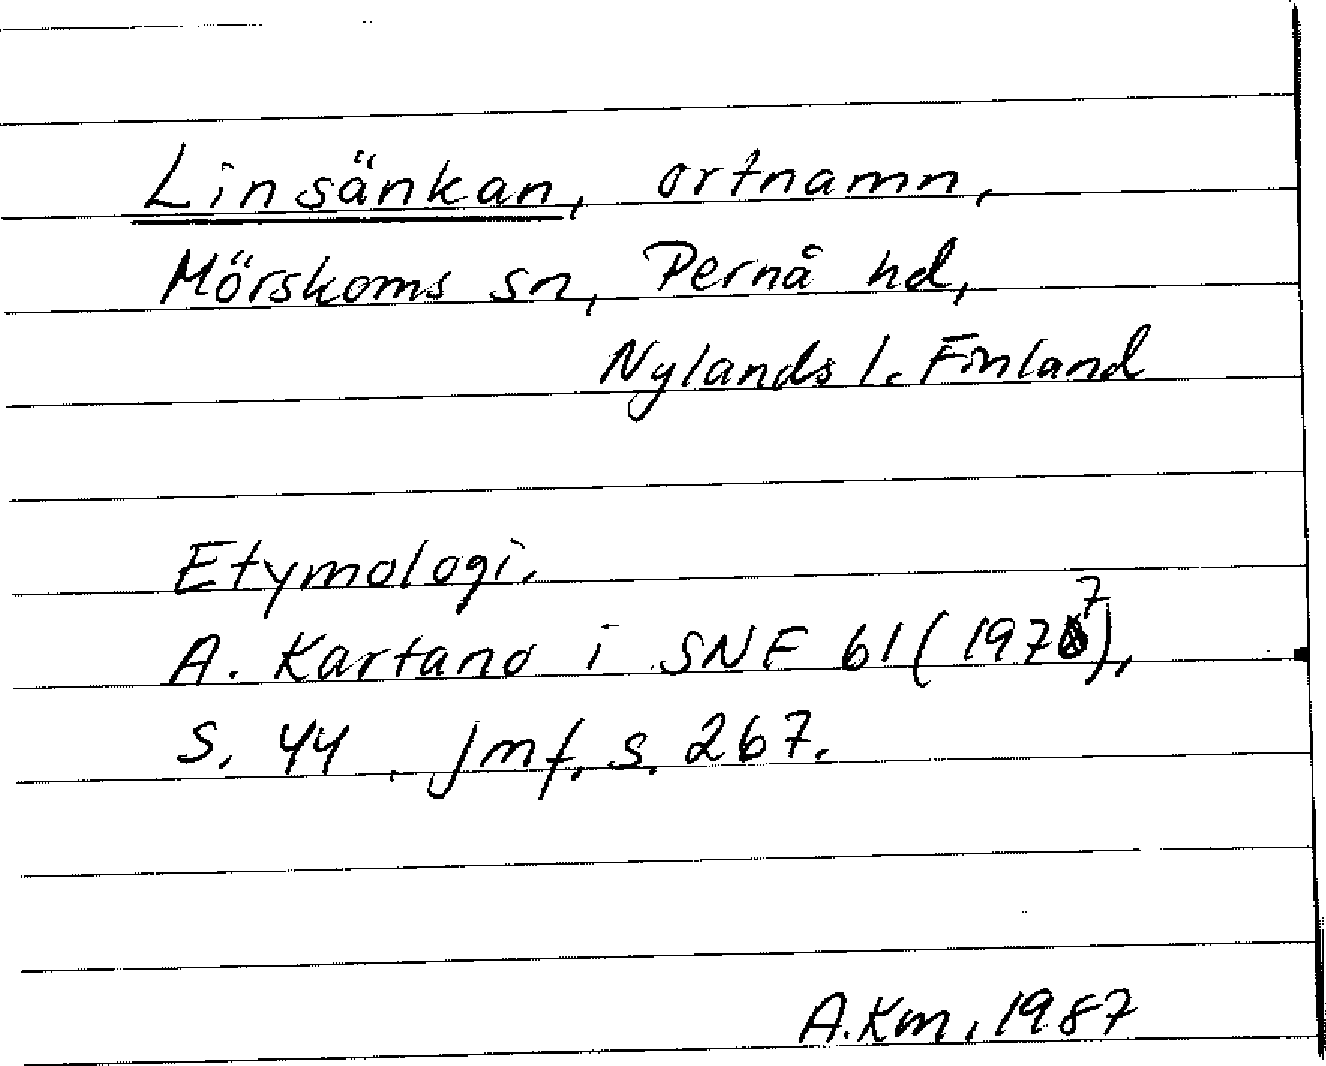 Linsänkan, ortnamn,
Mörskoms sn, Pernå hd,
Nylands l. Finland
Etymologi.
A. Kartano i SNF 61 (1977),
s. 44. Jmf. s. 267.
A.Km. 1987